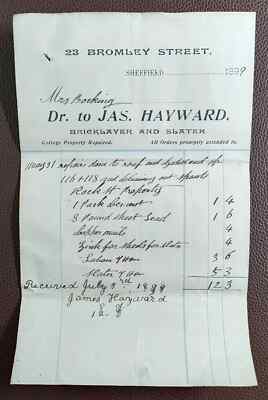 23 BROMLEY STREET,
SHEFFIELD 1899
Mrs Bocking
Dr. to JAS. HAYWARD,
BRICKLAYER AND SLATER
Cottage Property Repaired. All Orders promptly attended to.
May 31 repairs done to roof and
116 + 118 and cleaning out spouts
Rock St Property
1 Peck Cement 1 4
3 Pound sheet Lead 1 6
Copper nails 4
Zinc for 4
Labour 3 6
Slater 5 3
Received July 1899 12 3
James Hayward